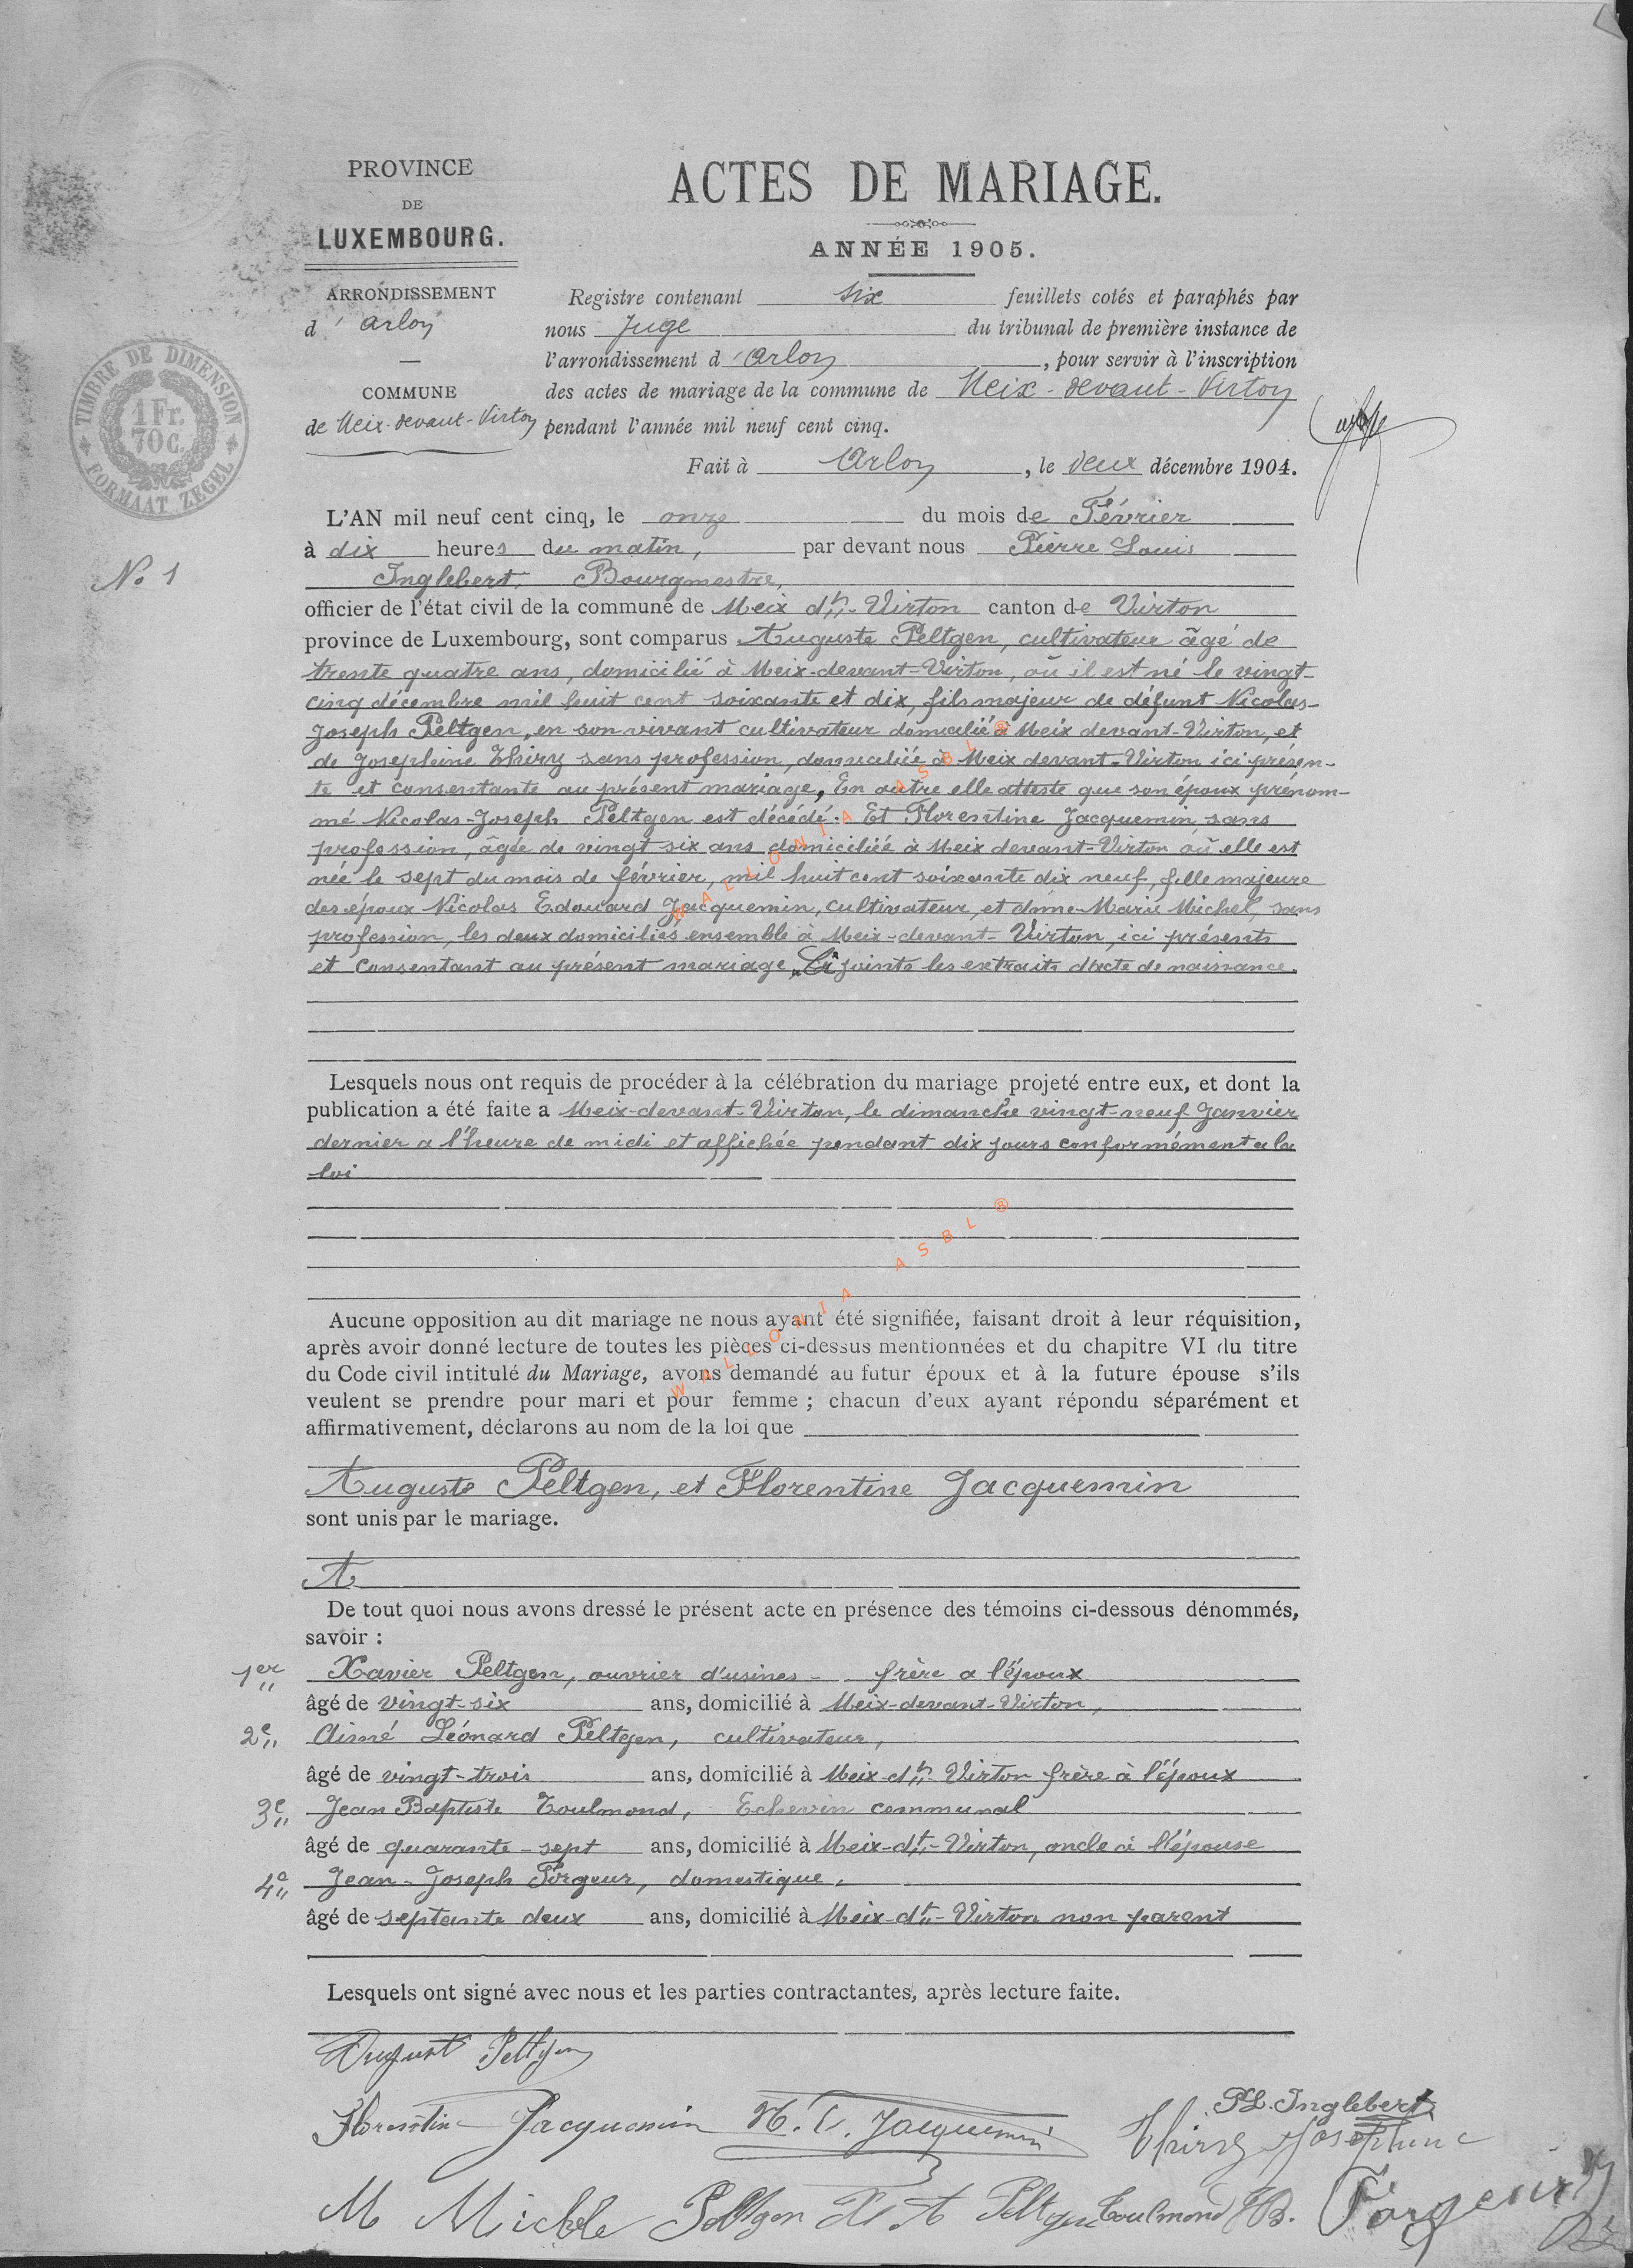 PROVINCE
DE
LUXEMBOURG.
ACTES DE MARIAGE.
ANNÉE 1905.
ARRONDISSEMENT
d'Arlon
COMMUNE
de Meix-devant-Virton
Registre contenant six feuillets cotés et paraphés par
nous Juge du tribunal de première instance de
l'arrondissement d'Arlon, pour servir à l'inscription
des actes de mariage de la commune de Meix-devant-Virton
pendant l'année mil neuf cent cinq.
Fait à Arlon, le deux décembre 1904.
TIMBRE DE DIMENSION
1 Fr.
70C.
FORMAAT ZEGEL
No 1
L'AN mil neuf cent cinq, le onze du mois de Février
à dix heures du matin, par devant nous Pierre Louis
Inglebert, Bourgmestre,
officier de l'état civil de la commune de Meix dt-Virton canton de Virton
province de Luxembourg, sont comparus Auguste Peltgen, cultivateur âgé de
trente quatre ans, domicilié à Meix-devant-Virton, où il est né le vingt-
cinq décembre mil huit cent soixante et dix, fils majeur de défunt Nicolas-
Joseph Peltgen, en son vivant cultivateur domicilié à Meix devant-Virton, et
de Josephine Thiry sans profession, domiciliée à Meix devant-Virton ici présen-
te et consentante au présent mariage, En outre elle atteste que son époux prénom-
mé Nicolas-Joseph Peltgen est décédé. Et Florentine Jacquemin sans
profession, âgée de vingt six ans domiciliée à Meix devant-Virton où elle est
née le sept du mois de février, mil huit cent soixante dix neuf, fille majeure
des époux Nicolas Edouard Jacquemin, cultivateur, et dme Marie Michel, sans
profession, les deux domiciliés ensemble à Meix-devant-Virton, ici présents
et consentant au présent mariage, Ci joints les extraits d'acte de naissance.
Lesquels nous ont requis de procéder à la célébration du mariage projeté entre eux, et dont la
publication a été faite a Meix-devant-Virton, le dimanche vingt-neuf Janvier
dernier a l'heure de midi et affichée pendant dix jours conformément a la
loi
Aucune opposition au dit mariage ne nous ayant été signifiée, faisant droit à leur réquisition,
après avoir donné lecture de toutes les pièces ci-dessus mentionnées et du chapitre VI du titre
du Code civil intitulé du Mariage, avons demandé au futur époux et à la future épouse s'ils
veulent se prendre pour mari et pour femme ; chacun d'eux ayant répondu séparément et
affirmativement, déclarons au nom de la loi que
Auguste Peltgen, et Florentine Jacquemin
sont unis par le mariage.
A
De tout quoi nous avons dressé le présent acte en présence des témoins ci-dessous dénommés,
savoir :
1er Xavier Peltgen, ouvrier d'usines - frère a l'époux
âgé de vingt-six ans, domicilié à Meix-devant-Virton,
2e Aimé Léonard Peltgen, cultivateur,
âgé de vingt-trois ans, domicilié à Meix-dt-Virton frère à l'époux
3e Jean Baptiste Toulmond, Echevin communal
âgé de quarante-sept ans, domicilié à Meix-dt-Virton, oncle à l'épouse
4e Jean-Joseph Forgeur, domestique,
âgé de septante deux ans, domicilié à Meix-dt-Virton non parent
Lesquels ont signé avec nous et les parties contractantes, après lecture faite.
August Peltgen
PL. Inglebert
Florentine Jacquemin N. E. Jacquemin Thiry Josephine
M Michle Peltgen X A Peltgen Toulmond JB. Forgeur
WALLONIA ASBL ®
WALLONIA ASBL ®